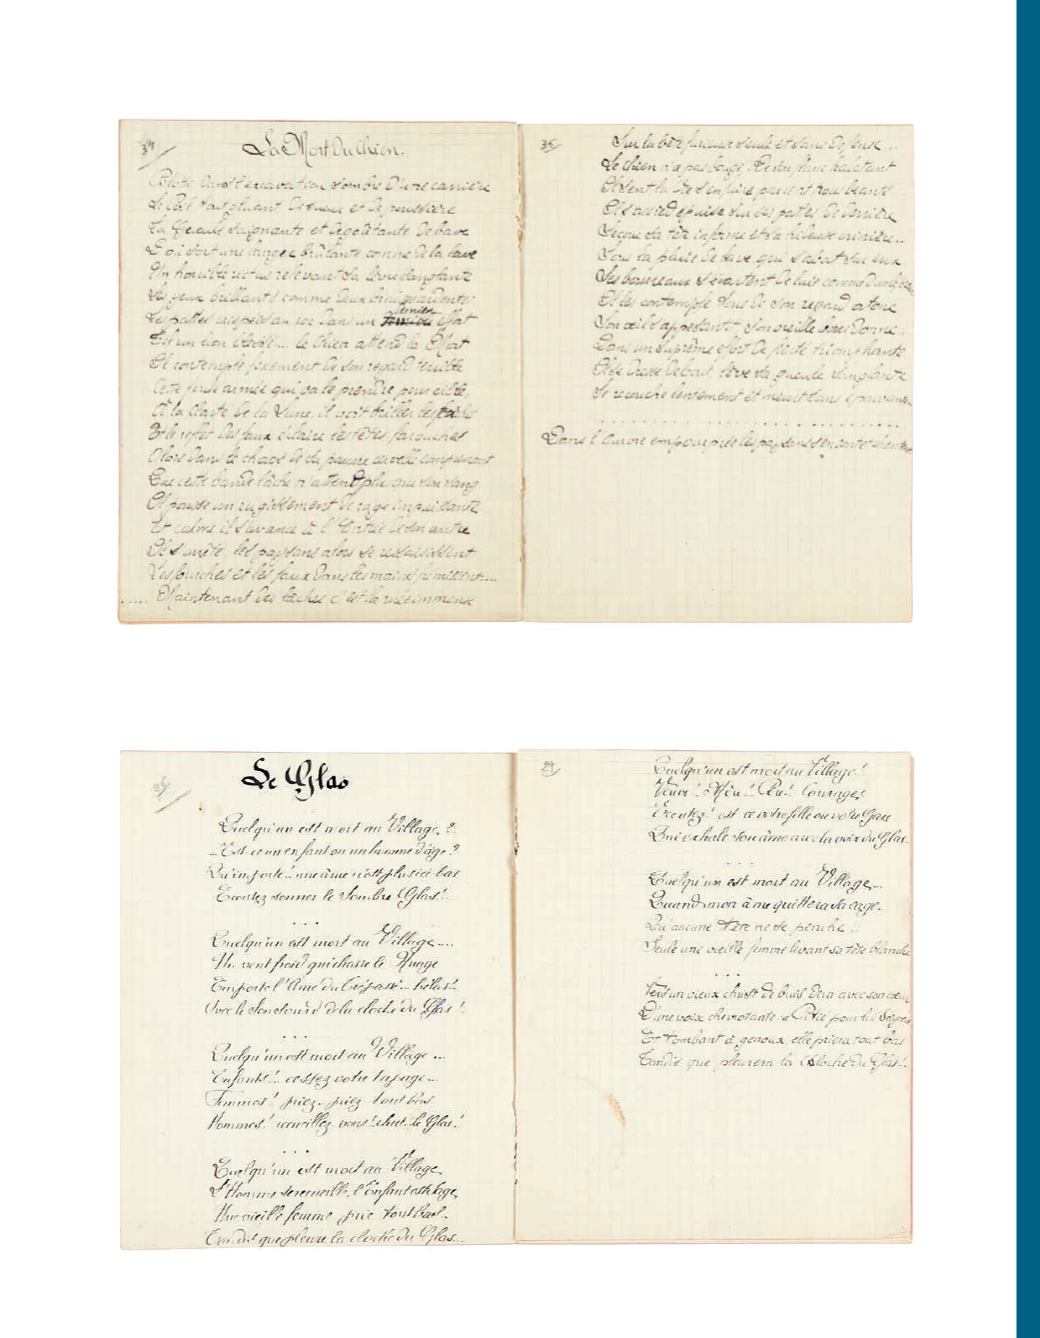 34
La Mort du Chien.
Blotti dans l'excavation sombre d'une carrière
Le Poil tout gluant de sueur et de poussière
La Gueule saignante et dégoûtante de bave
D'où sort une langue brûlante comme de la lave
Un horrible rictus relevant sa lèvre sanglante
Les yeux brillants comme deux braises ardentes
Les pattes crispées au roc dans un dernier effort
Tel un lion blessé... le chien attend la Mort
Il contemple fixement de son regard terrible
Cette foule armée qui va le prendre pour cible,
À la clarté de la Lune, il voit briller les
Et le reflet des faux éclaire les têtes farouches
Alors dans le chaos de sa pauvre cervelle comprenant
Que cette bande lâche n'attend plus que son sang
Il pousse un rugissement de rage impuissante
Et calme il s'avance à l'Entrée de son antre
Il s'arrête, les paysans alors se
Les fourches et les faux dans les mains frémissent....
..... Maintenant des lâches c'est la ruée immense
35
Sur la bête furieuse seule et sans défense...
Le chien n'a pas bougé. De son flanc haletant
Il sent la vie s'enfuire par cent trous béants
Il s'assied épuisé sur ses pattes de derrière
Secoue sa tête informe et sa hideuse crinière...
Sous la pluie de bave qui s'abat sur eux
Ses bourreaux s'écartent de lui comme d'un
Il les contemple tous de son regard atone
Son œil s'appesantit, son oreille bourdonne..
Dans un suprême effort de fierté triomphante
Il se dresse debout, lève sa gueule sanglante
Se recouche lentement et meurt dans l'épouvante..
. . . . . . . . . . . . . . . . .
Dans l'Aurore empourprée les paysans s'en vont
Le Glas
Quelqu'un est mort au Village ?
_ Est-ce un enfant ou un homme d'âge ?
Qu'importe! une âme n'est plus ici bas
Ecoutez sonner le sombre Glas!..
. . .
Quelqu'un est mort au Village....
Un vent froid qui chasse le Nuage
Emporte l'Ame du Trépassé... hélas!..
Avec le son sourd de la cloche du Glas !.
. . .
Quelqu'un est mort au Village ...
Enfants!.. cessez votre tapage...
Femmes! priez.. priez tout bas
Hommes! recueillez vous! chut.. le Glas!
. . .
Quelqu'un est mort au Village,
L'Homme se recueille, l'Enfant est sage,
Une vieille femme prie tout bas..
Tandis que pleure la cloche du Glas...
29
Quelqu'un est mort au Village!
Courage!
Ecoutez! est ce votre fille ou votre Gars
Qui exhale son âme avec la voix du Glas.
. . .
Quelqu'un est mort au Village...
Quand mon âme quittera sa cage.
Qu'aucune tête ne se penche!!
Seule une vieille femme levant sa tête blanche
. . .
Vers un vieux christ de buis dira avec son cœur
D'une voix chevrotante: « Pitié pour lui Seigneur
Et tombant à genoux, elle priera tout bas
Tandis que pleurera la Cloche du Glas!..